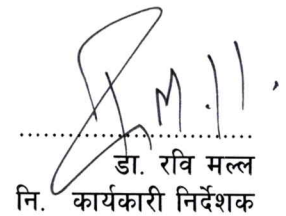 डा. रवि मल्ल
नि. कार्यकारी निर्देशक